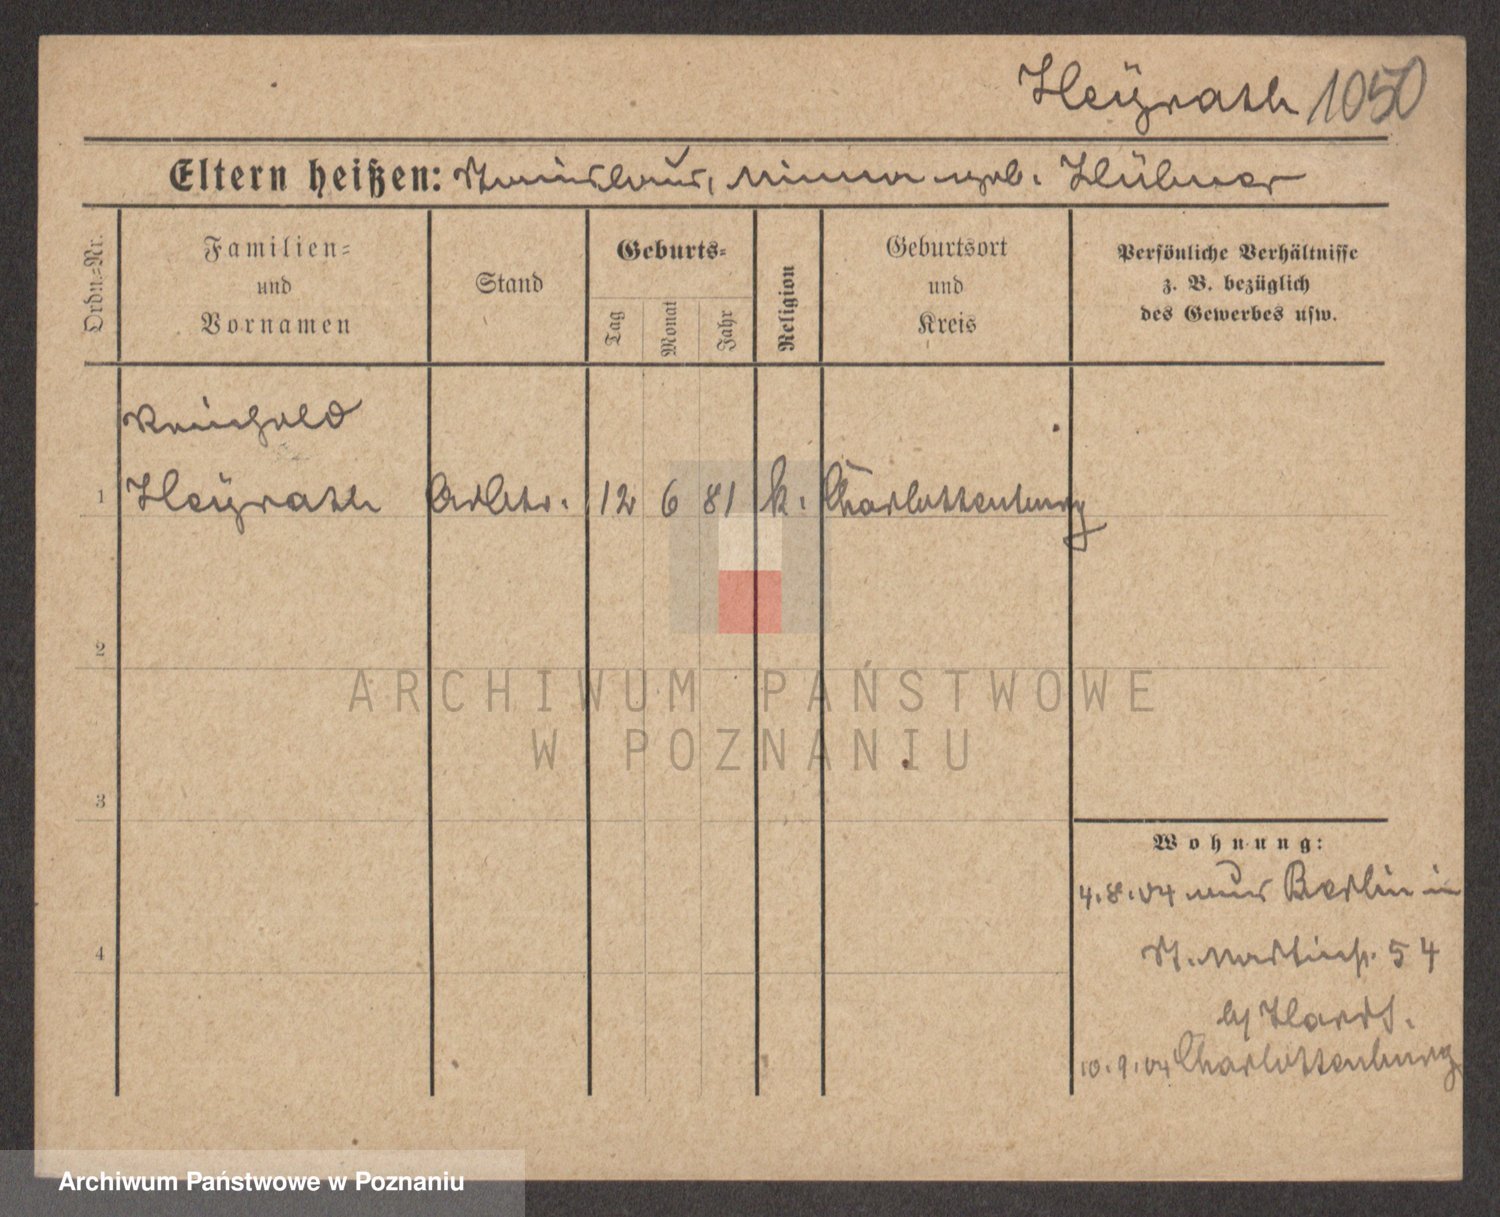 Heÿrath 1050
Eltern heißen: Stanislaus, Minna geb. Hübner
Ordn.=Nr.
Familien=
und
Vornamen
Stand
Geburts=
Tag
Monat
Jahr
Religion
Geburtsort
und
Kreis
Persönliche Verhältnisse
z. B. bezüglich
des Gewerbes usw.
Reinhold
1 Heÿrath Arbtr. 12 6 81 k. Charlottenburg
2
ARCHIWUM PAŃSTWOWE
W POZNANIU
3
Wohnung:
4.8.04 aus Berlin in
St. Martinstr. 54
b/
4
10.9.04 Charlottenburg
Archiwum Państwowe w Poznaniu